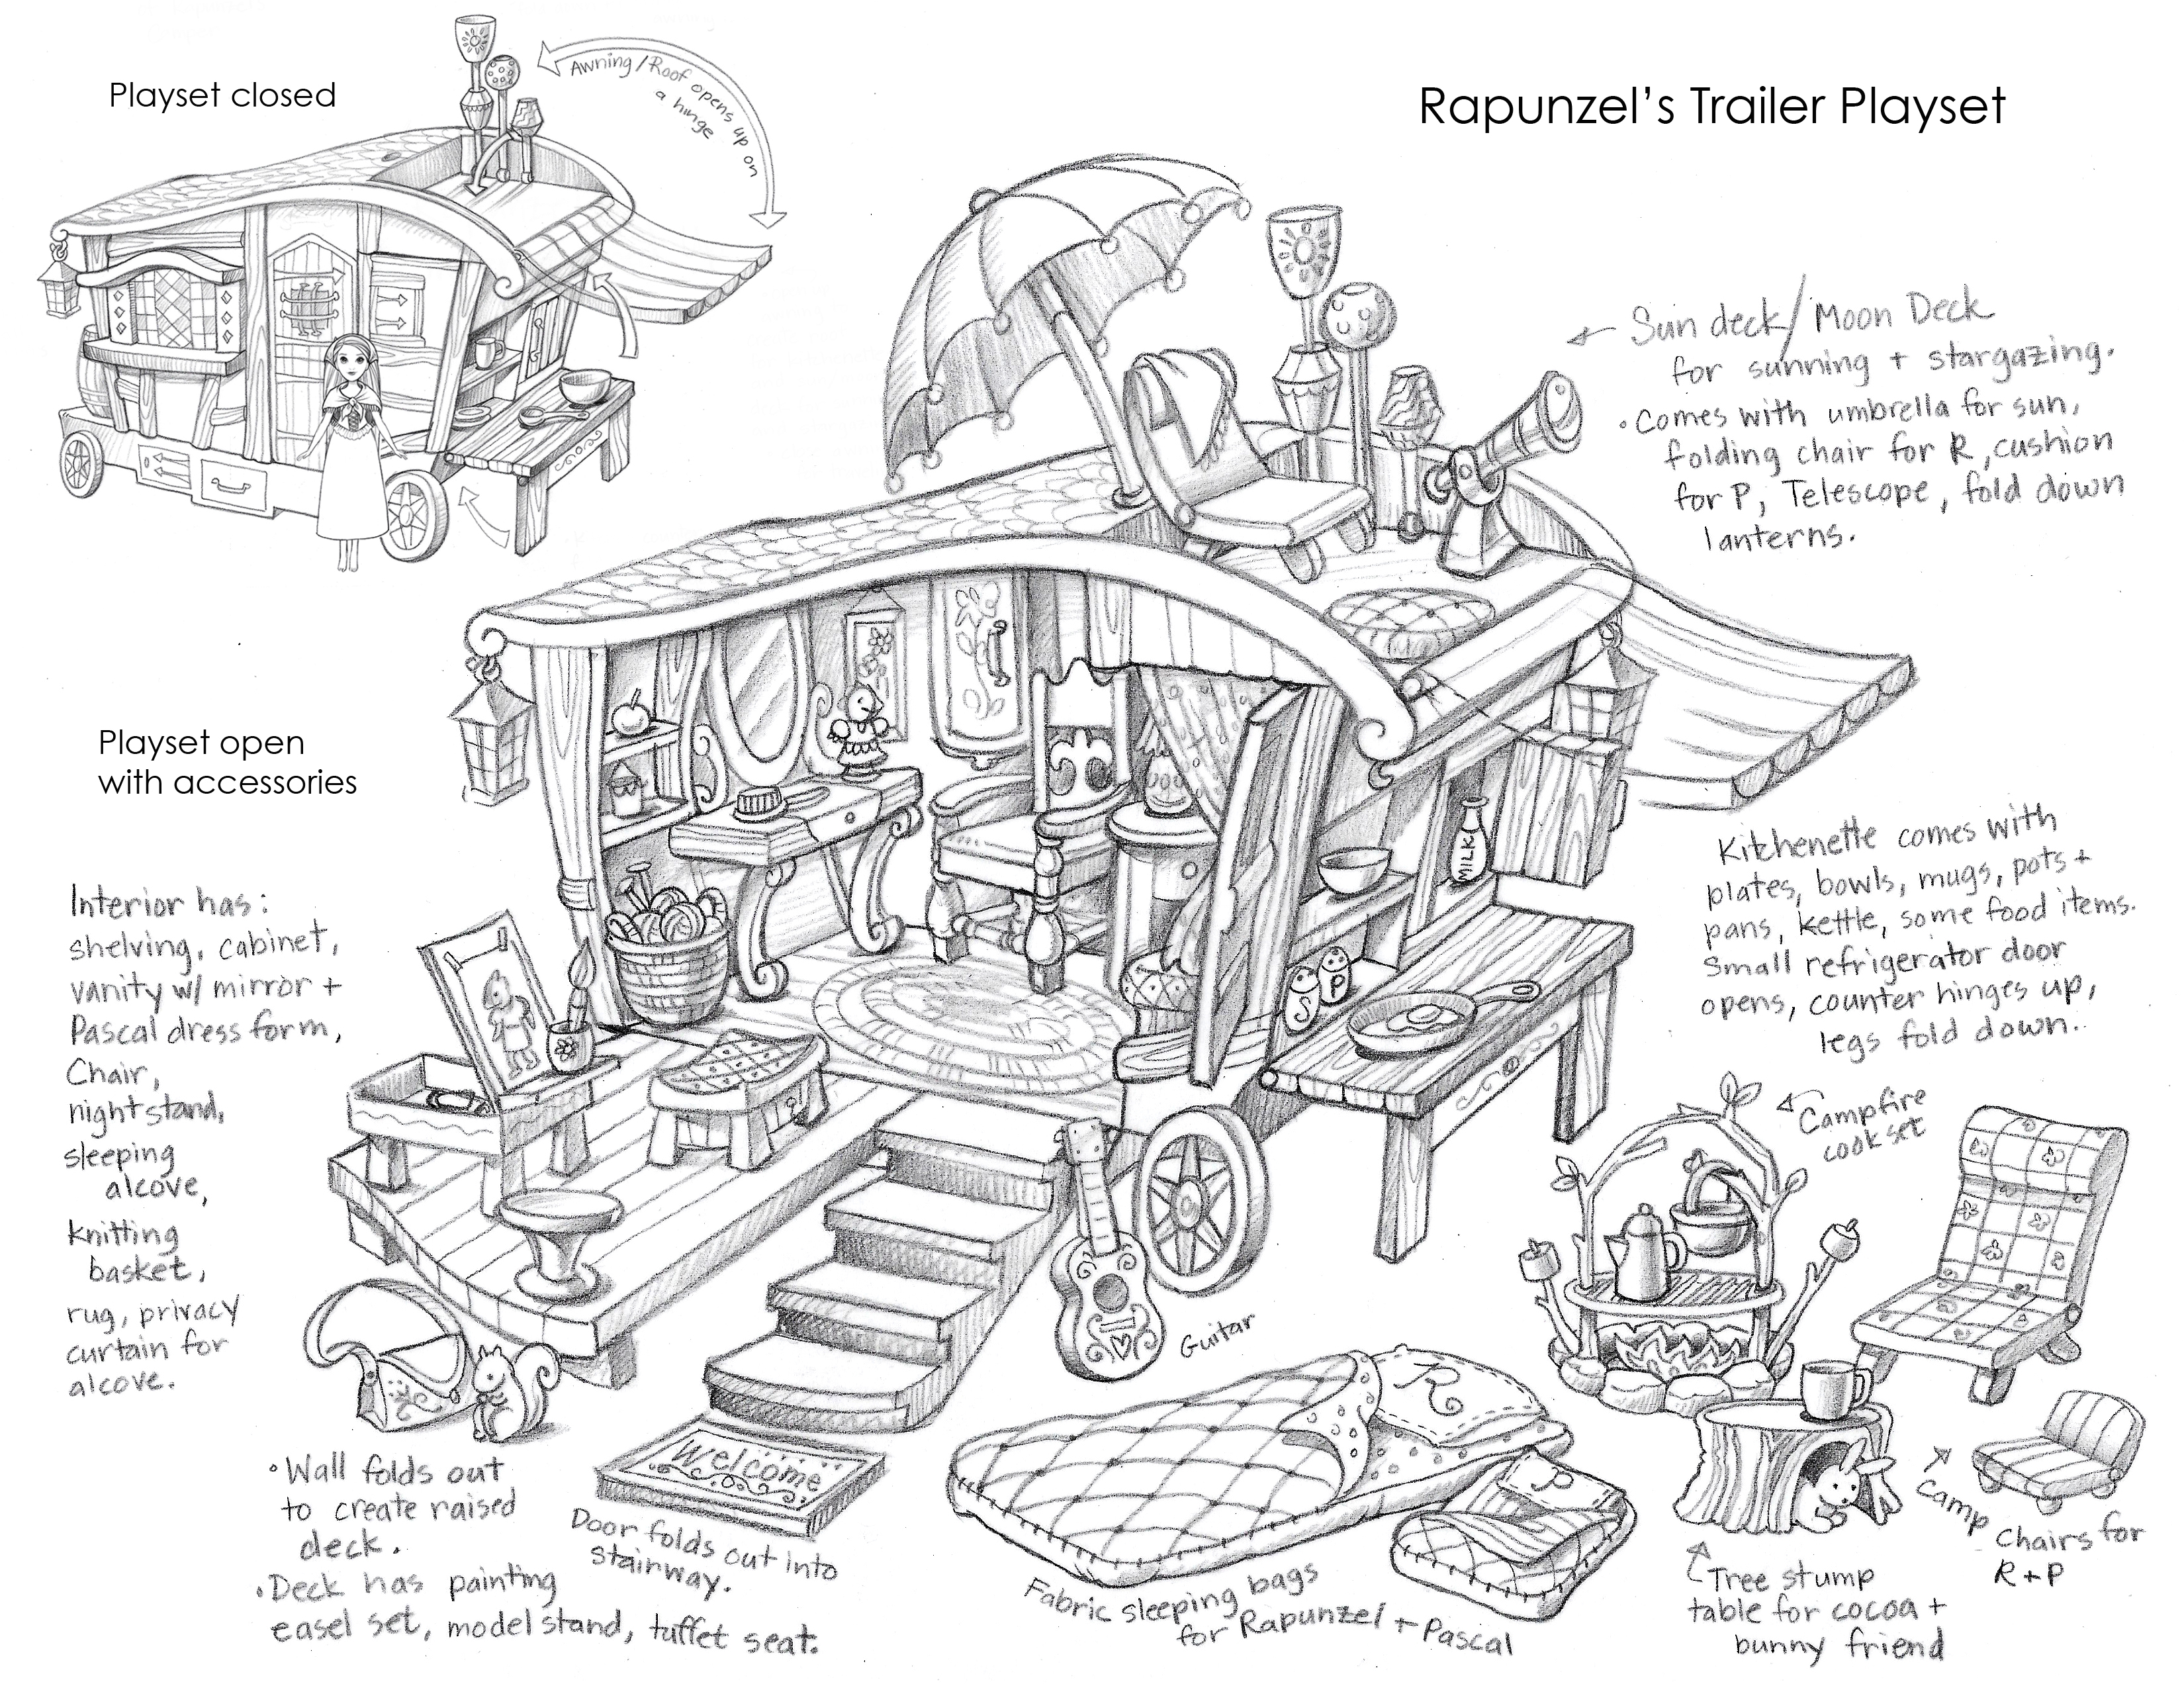 Playset closed
Awning/Roof opens up on
a hinge
Rapunzel's Trailer Playset
Sun deck/Moon Deck
for sunning + stargazing.
• Comes with umbrella for sun,
folding chair for R, cushion
for P, Telescope, fold down
lanterns.
Playset open
with accessories
Interior has:
shelving, cabinet,
vanity w/ mirror +
Pascal dress form,
Chair,
nightstand,
sleeping
alcove,
knitting
basket,
rug, privacy
curtain for
alcove.
MILK
S
P
Kitchenette comes with
plates, bowls, mugs, pots +
pans, kettle, some food items.
Small refrigerator door
opens, counter hinges up,
legs fold down..
Campfire
cook set
Guitar
R
P
Welcome
• Wall folds out
to create raised
deck.
• Deck has painting
easel set, model stand, tuffet seat.
Door folds out into
stairway.
Fabric sleeping bags
for Rapunzel + Pascal
Camp
Chairs for
R + P
Tree stump
table for cocoa +
bunny friend